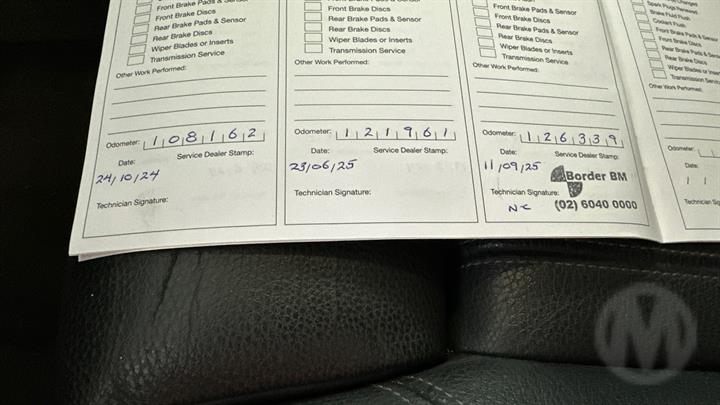 Front Brake Pads & Sensor
Front Brake Discs
Rear Brake Pads & Sensor
Rear Brake Discs
Wiper Blades or Inserts
Transmission Service
Other Work Performed:
Odometer: 108162
Date: Service Dealer Stamp:
24/10/24
Technician Signature:
Front Brake Discs
Rear Brake Pads & Sensor
Rear Brake Discs
Wiper Blades or Inserts
Transmission Service
Other Work Performed:
Odometer: 121961
Date: Service Dealer Stamp:
23/06/25
Technician Signature:
Front Brake Pads & Sensor
Front Brake Discs
Rear Brake Pads & Sensor
Rear Brake Discs
Wiper Blades or Inserts
Transmission Service
Other Work Performed:
Odometer: 126339
Date: Service Dealer Stamp:
11/09/25
Border BM
Technician Signature:
NC (02) 6040 0000
Spark Plugs Replaced
Brake Fluid Flush
Coolant Flush
Front Brake Pads & Sensor
Front Brake Discs
Rear Brake Pads & Sensor
Rear Brake Discs
Wiper Blades or Inserts
Transmission Service
Other Work Performed:
Odometer:
Date:
/ /
Technician
M